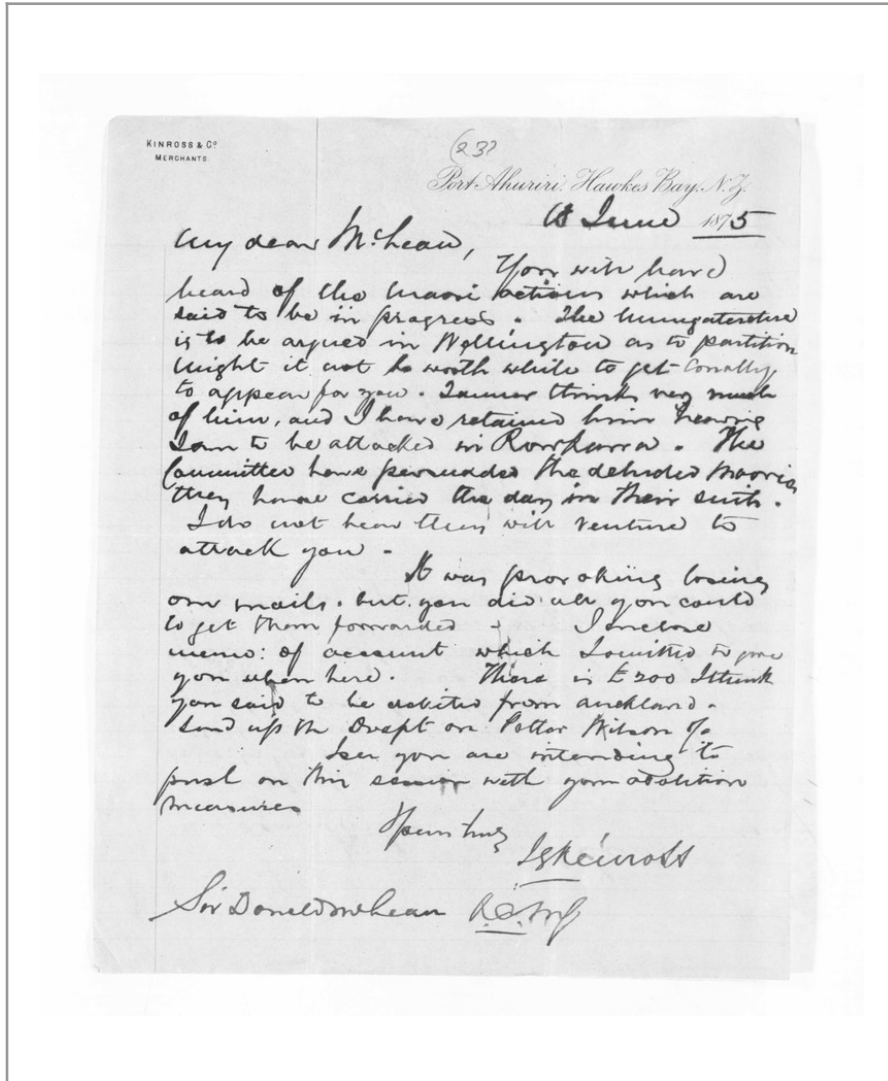 KINROSS & Co
MERCHANTS
(23)
Port Ahuriri. Hawkes Bay, N.Z.
June 1875
My dear McLean,
You will have
heard of the Maori actions which are
said to be in progress. The
is to be argued in Wellington as to partition
might it not be worth while to get Conolly
to appear for you. Tanner thinks very much
of him, and I have retained him hearing
I am to be attacked in . The
Committee have persuaded the deluded Maories
they have carried the day in their suits.
I do not hear they will venture to
attack you -
It was provoking losing
our mails. but you did all you could
to get them forwarded - I enclose
memo: of account which I omitted to give
you when here. There is £200 I think
you said to be debited from Auckland.
Send up the Draft on Potter Wilson &c
I see you are intending to
push on this session with your abolition
measures
Yours truly
J G Kinross
Sir Donald McLean K.C.M.G